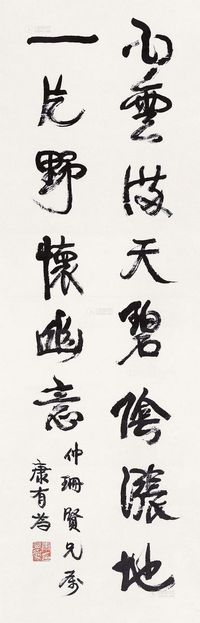 雨雲滿天碧陰漲地
一片野懷幽意
仲珊賢兄屬
康有為